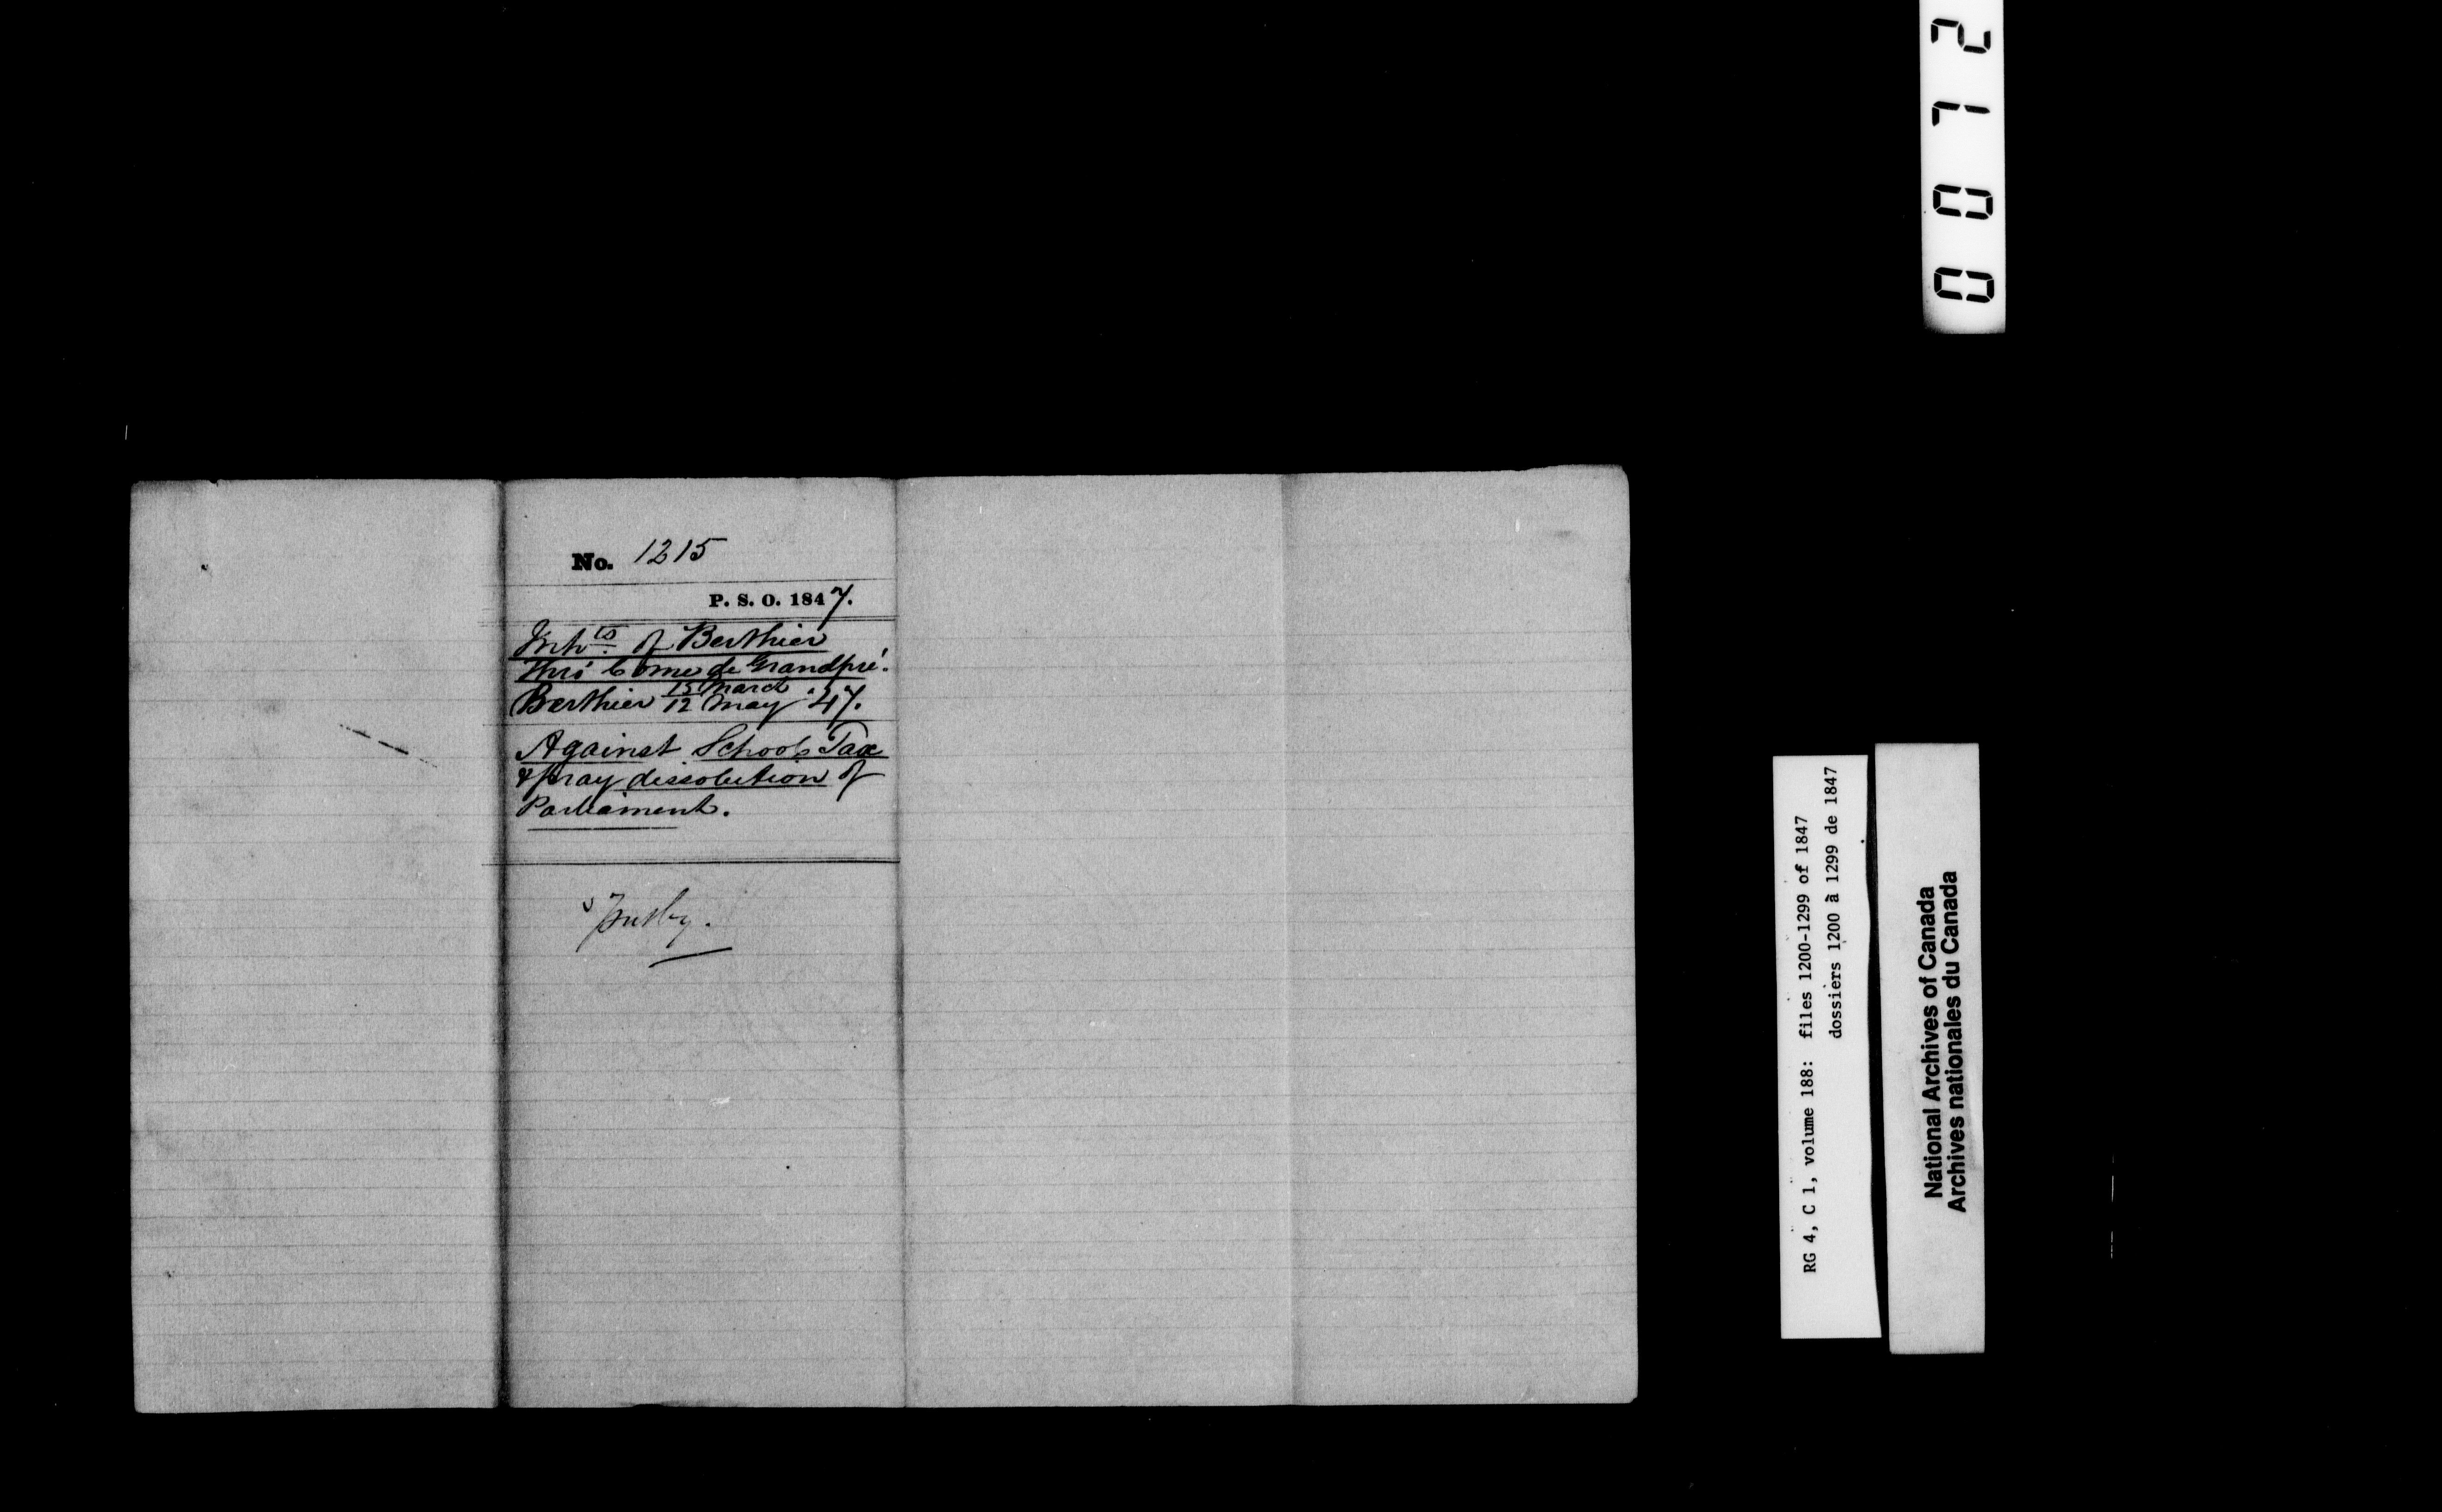 No. 1215
P. S. O. 1847.
Inhts. of Berthier
Thro' Come de Grandpré.
Berthier 15 March
12 May 47.
Against School Tax
& pray dissolution of
Parliament.
0072
RG 4, C 1, volume 188: files 1200-1299 of 1847
dossiers 1200 à 1299 de 1847
National Archives of Canada
Archives nationales du Canada